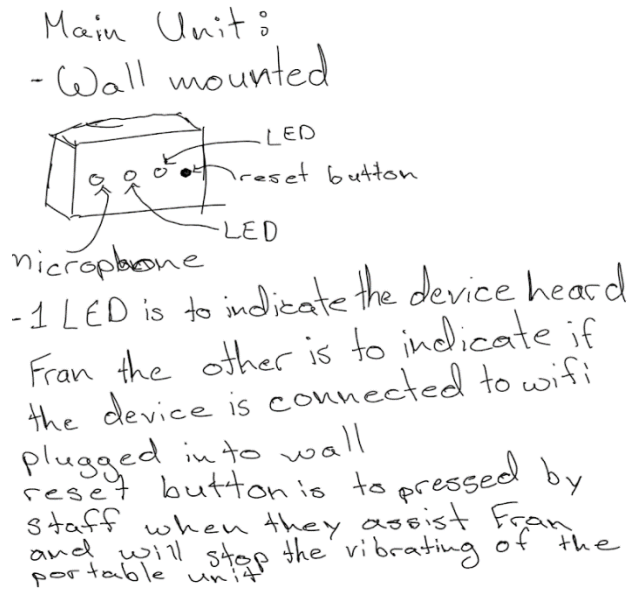 Main Unit:
- Wall mounted
LED
reset button
LED
microphone
- 1 LED is to indicate the device heard
Fran the other is to indicate if
the device is connected to wifi
plugged into wall
reset button is to pressed by
staff when they assist Fran
and will stop the vibrating of the
portable unit